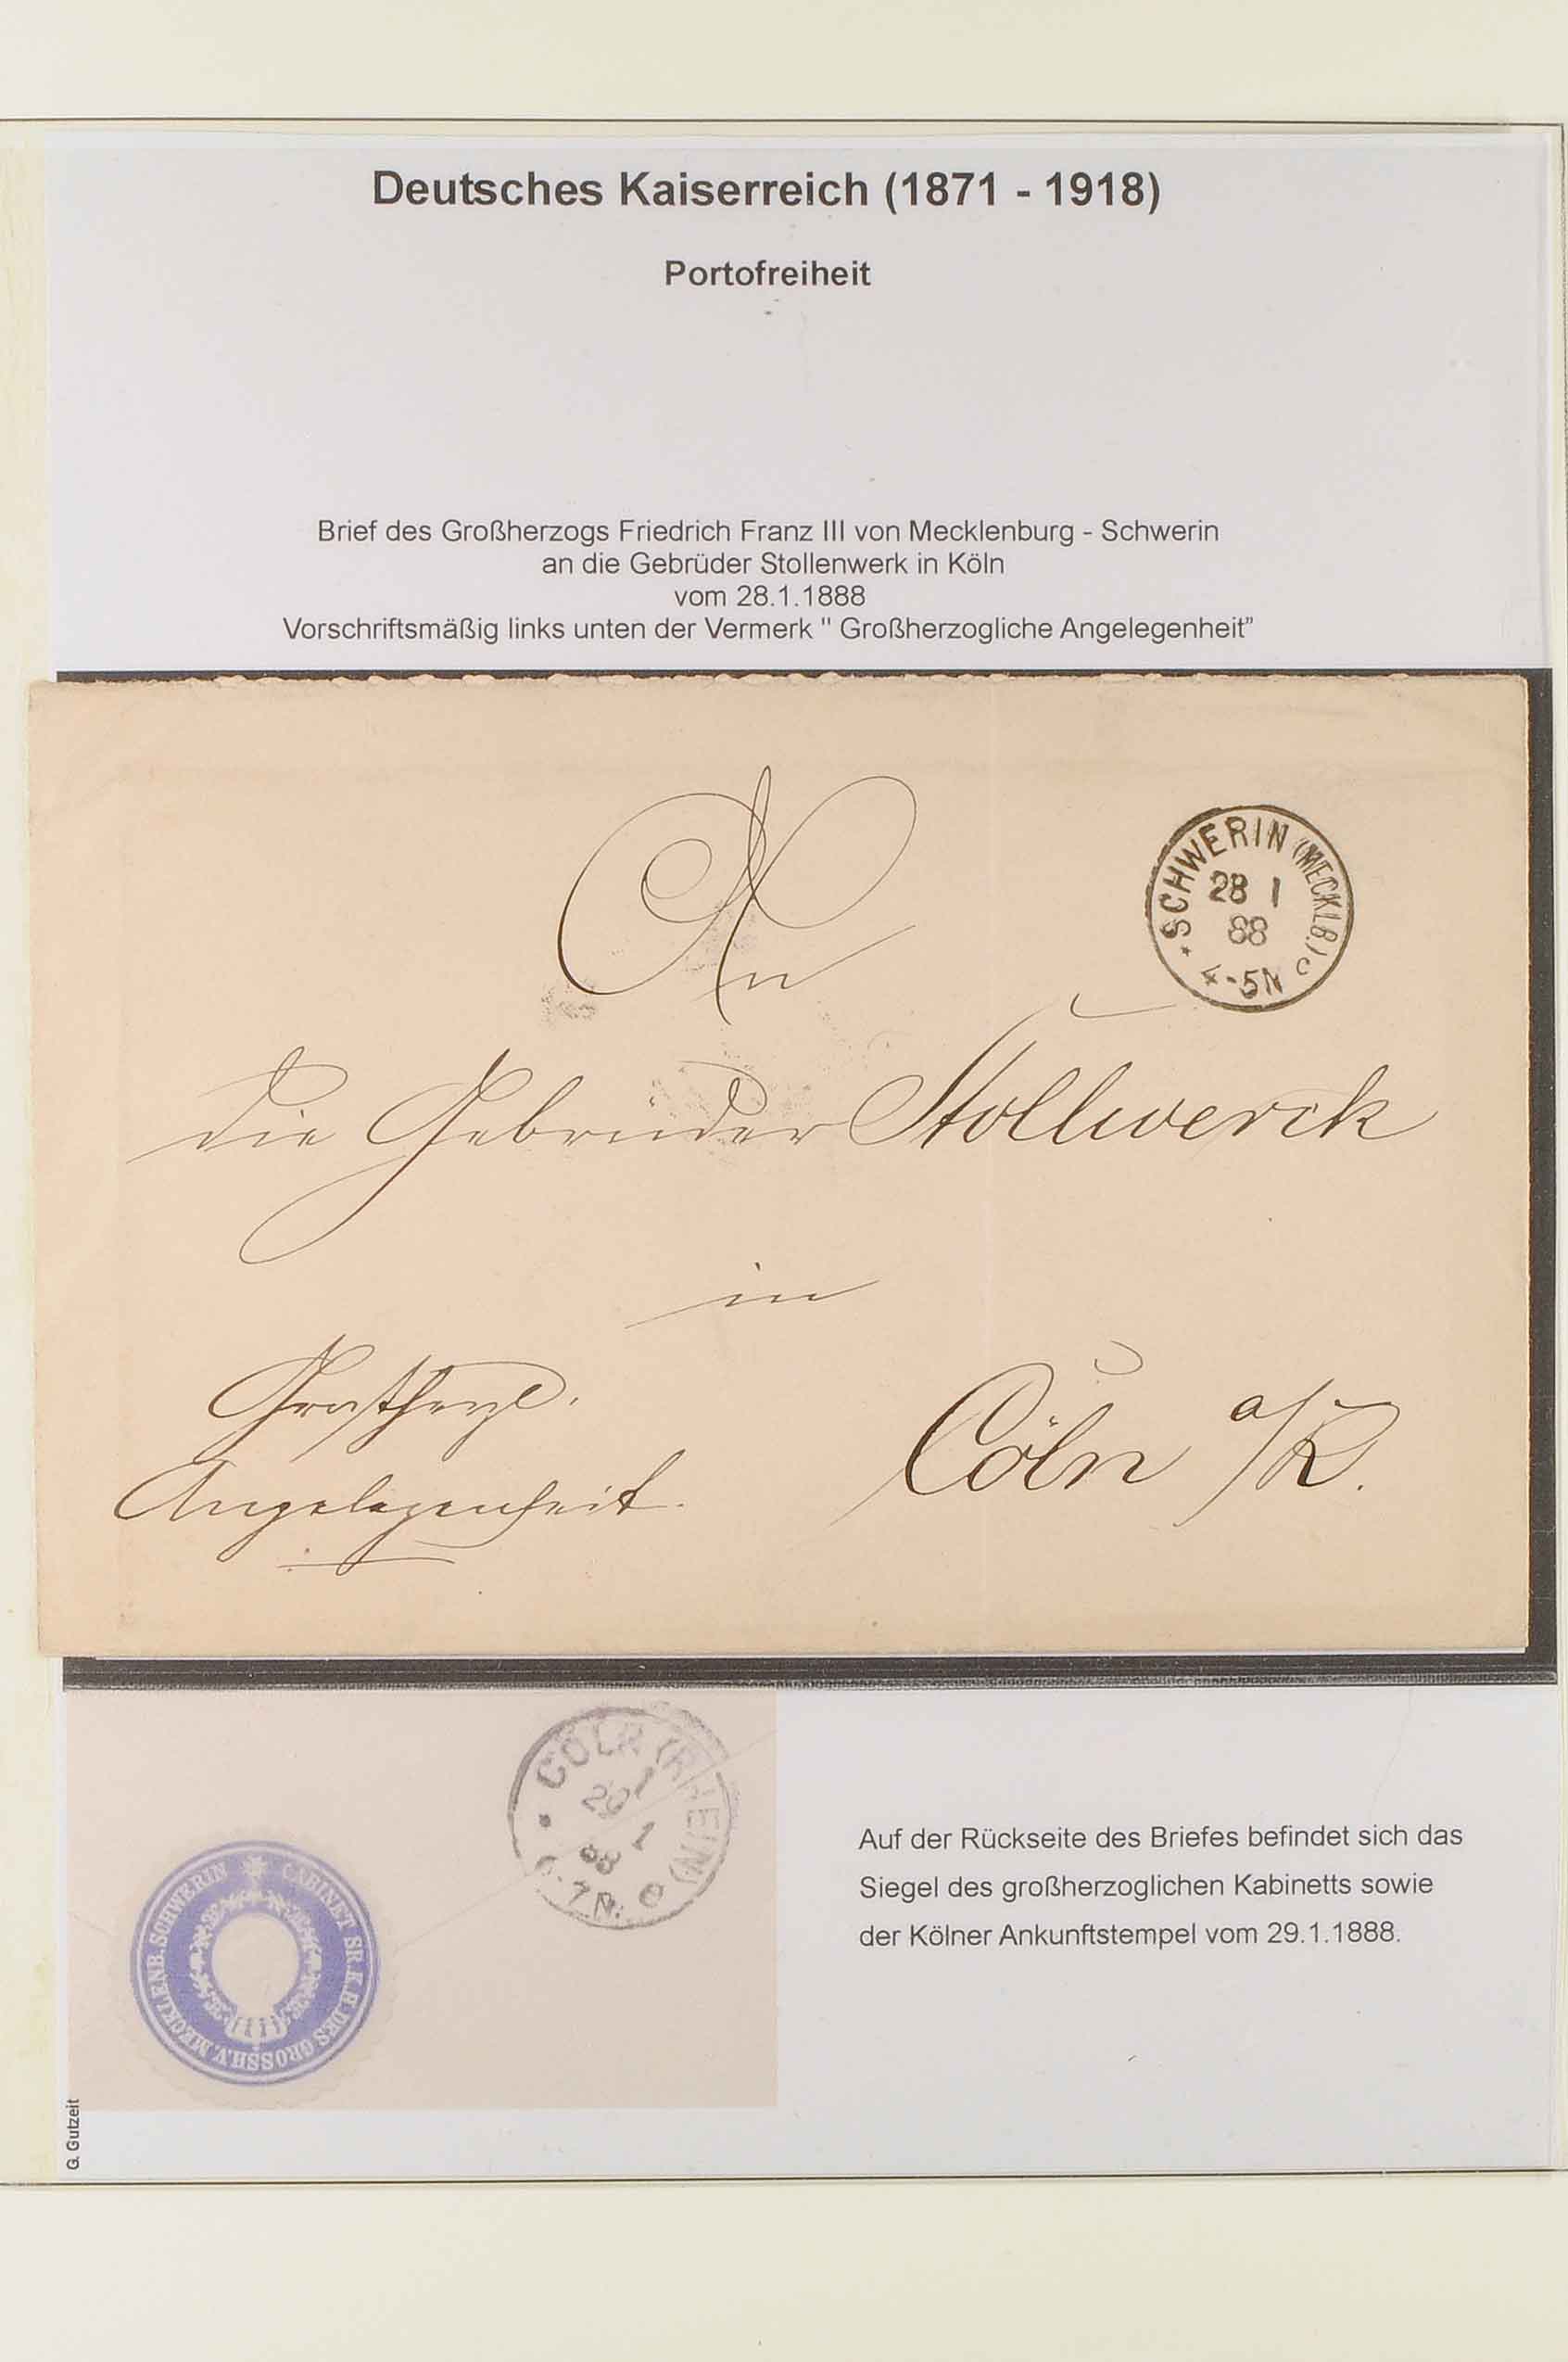 Deutsches Kaiserreich (1871 - 1918)
Portofreiheit
Brief des Großherzogs Friedrich Franz III von Mecklenburg - Schwerin
an die Gebrüder Stollenwerk in Köln
vom 28.1.1888
Vorschriftsmäßig links unten der Vermerk " Großherzogliche Angelegenheit”
An
SCHWERIN (MECKLB.)
28 1
88
4-5N
die Gebrüder Stollwerck
in
Großherzl.
Angelegenheit.
Cöln a/R.
CÖLN (RHEIN)
29 1
88
7 N.
CABINET SR. K. H. DES GROSSH. V. MECKLENB. SCHWERIN
Auf der Rückseite des Briefes befindet sich das
Siegel des großherzoglichen Kabinetts sowie
der Kölner Ankunftstempel vom 29.1.1888.
G. Gutzeit